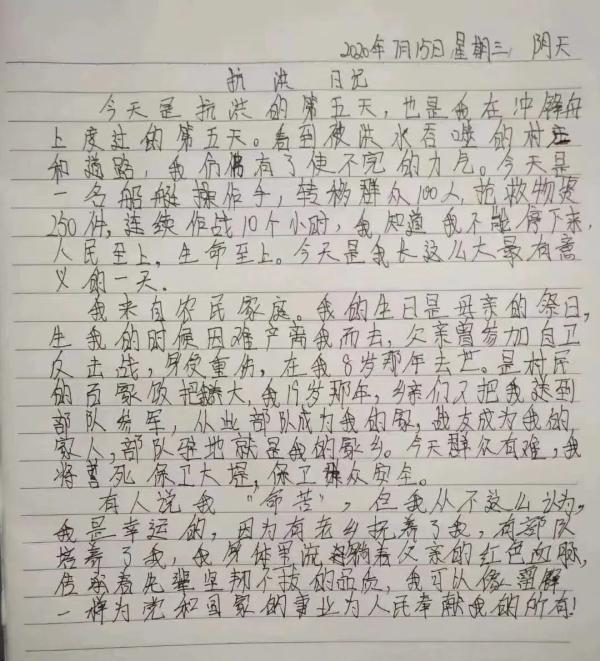 2020年7月15日 星期三 阴天
抗洪 日记
今天是抗洪的第五天，也是我在冲锋舟
上度过的第五天。看到被洪水吞噬的村庄
和道路，我仿佛有了使不完的力气。今天是
一名船艇操作手，转移群众100人，抢救物资
250件，连续作战10个小时，我知道我不能停下来，
人民至上，生命至上。今天是我长这么大最有意
义的一天.
我来自农民家庭。我的生日是母亲的祭日，
生我的时候因难产离我而去，父亲曾参加自卫
反击战，身受重伤，在我8岁那年去世。是村民
的百家饭把我养大，我19岁那年，乡亲们又把我送到
部队参军，从此部队成为我的家，战友成为我的
家人，部队驻地就是我的家乡。今天群众有难，我
将誓死保卫大堤，保卫群众安全。
有人说我"命苦"，但我从不这么认为，
我是幸运的，因为有老乡抚养了我，有部队
培养了我，我身体里流淌着父亲的红色血脉，
传承着先辈坚韧不拔的品质，我可以像
一样为党和国家的事业为人民奉献我的所有！